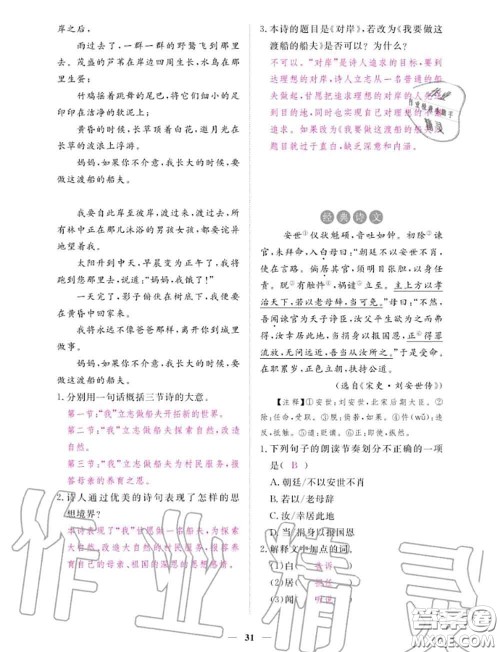 岸之后，
雨过去了，一群群的野鹜飞到那里
去。茂盛的芦苇在岸四周生长，水鸟在那里
生蛋；
竹鸡摇着跳舞的尾巴，将它们细小的足
印印在洁净的软泥上；
黄昏的时候，长草顶着白花，邀月光在
长草的波浪上浮游。
妈妈，如果你不介意，我长大的时候，要
做这渡船的船夫。
我要自此岸至彼岸，渡过来，渡过去，
所有村中正在那儿沐浴的男孩女孩，都要诧
异地望着我。
太阳升到中天，早晨变为正午了，我将
跑到您那里去，说道：“妈妈，我饿了！”
一天完了，影子俯伏在树底下，我便要
在黄昏中回家来。
我将永远不像爸爸那样，离开你到城里
去做事。
妈妈，如果你不介意，我长大的时候，要
做这渡船的船夫。
1.分别用一句话概括三节诗的大意。
第一节：“我”立志做船夫开拓新的世界。
第二节：“我”立志做船夫探索自然，改造
大自然。
第三节：“我”立志做船夫为村民服务，报
偿母亲的养育之恩。
2.诗人通过优美的诗句表现了怎样的思
想境界？
本诗表现了“我”甘愿做一名船夫，探索大
自然、改造大自然为村民服务，报偿养
育自己的母亲、祖国的深厚的思想感情
31
3.本诗的题目是《对岸》，若改为《我要做这
渡船的船夫》是否可以？为什么？
不可以。“对岸”是诗人追求的目标，要达
到理想的对岸，诗人立志从一名普通的船
夫做起，甘愿把追求理想的
目的，同时，“对岸
追求。如果改为《我要做这渡船的船夫》
题目就过于直白，缺乏深意和内涵。
经典诗文
安世①仪状魁硕，音吐如钟。初除②谏
官，未拜命，入白母曰：“朝廷不以安世不肖，
使在言路。倘居其官，须明目张胆，以身任
责，脱③有触忤④，祸谴立至。主上方以孝
治天下，若以老母辞，当可免。”母曰：“不然，
吾闻谏官为天子诤臣，汝父平生欲为之而弗
得，汝幸居此地，当捐身以报国恩。正得罪
流放，无问远近，吾当从汝所之。”于是受命。
在职累岁，正色立朝，扶持公道。
（选自《宋史·刘安世传》）
【注释】①安世：刘安世，北宋后期大臣。②
除：任命，授职。③脱：倘若，如果。④忤（wǔ）：违
逆，抵触。
1.下列句子的朗读节奏划分不正确的一项
是（ B ）
A.朝廷/不以安世不肖
B.若以/老母辞
C.汝/幸居此地
D.当 捐身以报国恩
2.解释文中加点的词。
(1)白（ 告诉 ）
(2)居（ 担任 ）
(3)闻（ 听说 ）
作业精灵